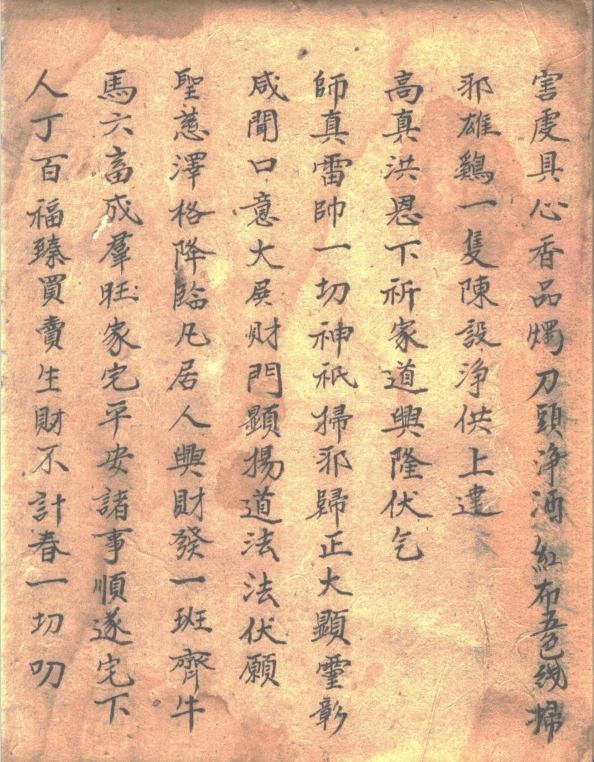 害虔具心香品燭刀頭浄酒紅布五色线掃
邪雄鷄一隻陳設浄供上達
高真洪恩下祈家道興隆伏乞
師真雷帥一切神祇掃邪歸正大顕靈彰
咸聞口意大展财門顕揚道法法伏願
聖慈澤格降臨凡居人興財發一班齊牛
馬六畜成羣旺家宅平安諸事順遂宅下
人丁百福臻買賣生財不計春一切叨